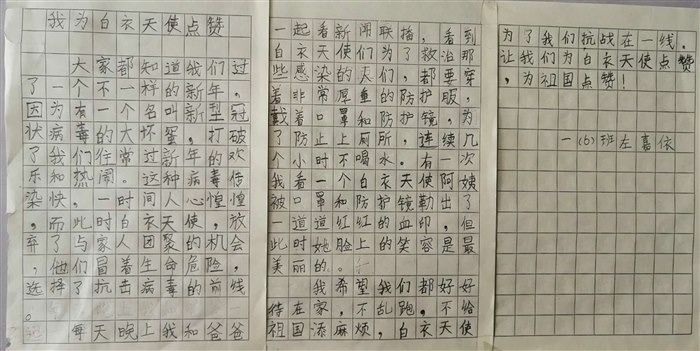 我为白衣天使点赞
大家都知道我们过
了一个不一样的新年。
因为有一个名叫新型冠
状病毒的大坏蛋，打破
了我们往常过新年的欢
乐和热闹。这种病毒传
染快，一时间人心惶惶
，而此时白衣天使，放
弃了与家人团聚的机会
，他们冒着生命危险，
选择了抗击病毒的前线
。
每天晚上我和爸爸
一起看新闻联播，看到
白衣天使们为了救治那
些感染的人们，都要穿
着非常厚重的防护服，
戴着口罩和防护镜，为
了防止上厕所，连续几
个小时不喝水。有一次
我看一个白衣天使阿姨
被口罩和防护镜勒出了
一道道红红的血印，但
此时她脸上的笑容是最
美丽的。
我希望我们都好好
待在家，不乱跑，不给
祖国添麻烦，白衣天使
为了我们抗战在一线。
让我们为白衣天使点赞
，为祖国点赞！
一(6)班左嘉依